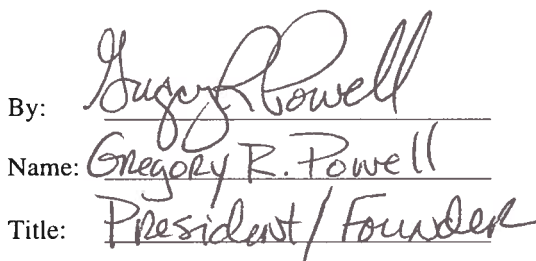 By: Gregory R Powell
Name: Gregory R. Powell
Title: President/Founder